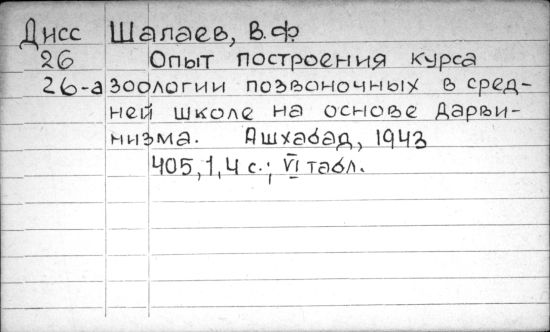 Дисс Шалаев, В.Ф
26 Опыт построения курса
26-а зоологии позвоночных в сред-
ней школе на основе Дарви-
низма. Ашхабад, 1943
405,1,4 с.; VI табл.